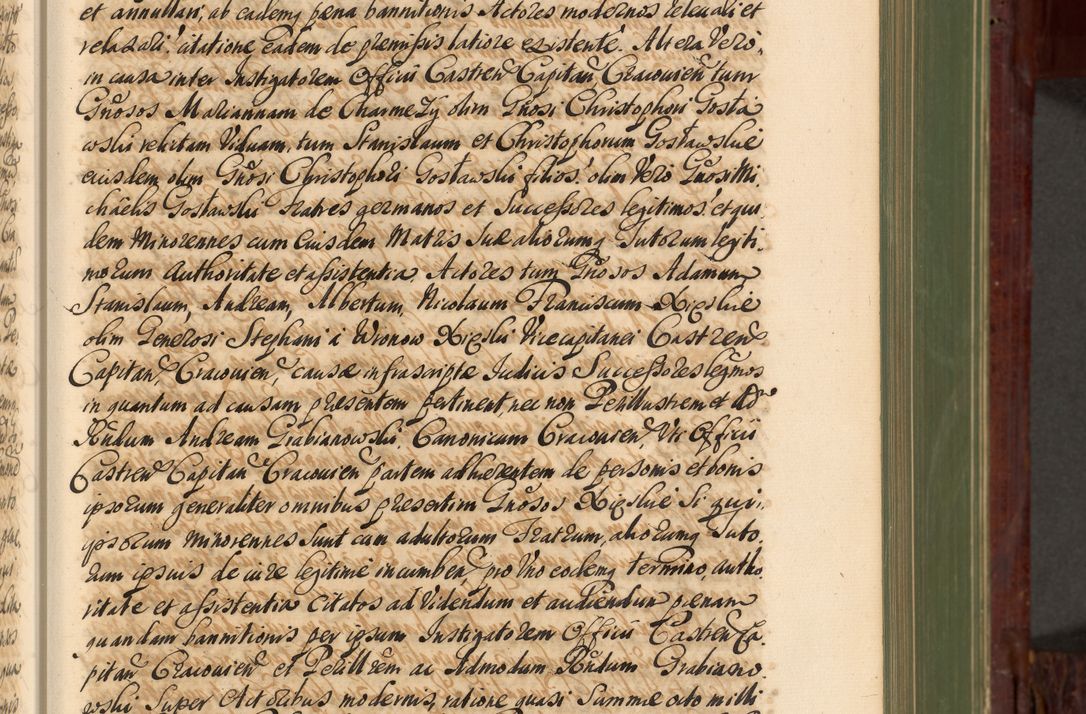 et annullari, ab eademq pæna bannitionis Actores modernos relevari et
relaxari citatione eadem de præmissis latiore existente. Altera Verò,
in causa inter Instigatorem Officii Castren Capitan Cracovien tum
Gnosos Mariannam de Charmezy olim Gnosi Christophori Gosta
wski relictam Viduam, tum Stanislaum et Christophorum Gostawskie
eiusdem olim Gnosi Christophori Gostawski filios, olim Verò Gnosi Mi,
chaelis Gostawski Fratres germanos et Successores legitimos et qui
dem Minorennes cum Eiusdem Matris suæ aliorumq Tutorum legiti,
morum Authoritate et assistentia Actores tum Gnosos Adamum
Stanislaum, Andream, Albertum, Nicolaum Franciscum
olim Generosi Stephani à Wronow Vicecapitanei Castren
Capitan, Cracovien, causæ infrascriptæ Iudicis Successores legmos
in quantum ad causam præsentem pertinent, nec non Perillustrem et Ad
Rndum Andream Grabianowski, Canonicum Cracovien, Vti Officii
Castren Capitan Cracovien partem adhærentem de personis et bonis
ipsorum generaliter omnibus præsertim Gnosos Si qui,
ipsorum Minorennes sunt cum adultorum Fratrum, aliorumq Tuto,
rum ipsius de iure legitimè incumben, pro Vno eodemq termino, autho,
ritate et assistentia Citatos ad Videndum et audiendum pænam
quandam bannitionis per ipsum Instigatorem Officii Castren Ca
pitan Cracovien et Perillrem ac Admodum Rndum Grabiano
wski Super Actoribus modernis, ratione quasi Summæ octo milli